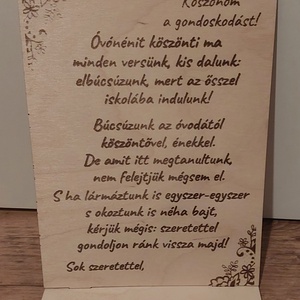 Köszönöm
a gondoskodást!
Óvónénit köszönti ma
minden versünk, kis dalunk:
elbúcsúzunk, mert az ősszel
iskolába indulunk!
Búcsúzunk az óvodától
köszöntővel, énekkel.
De amit itt megtanultunk,
nem felejtjük mégsem el.
S ha lármáztunk is egyszer-egyszer
s okoztunk is néha bajt,
kérjük mégis: szeretettel
gondoljon ránk vissza majd!
Sok szeretettel,